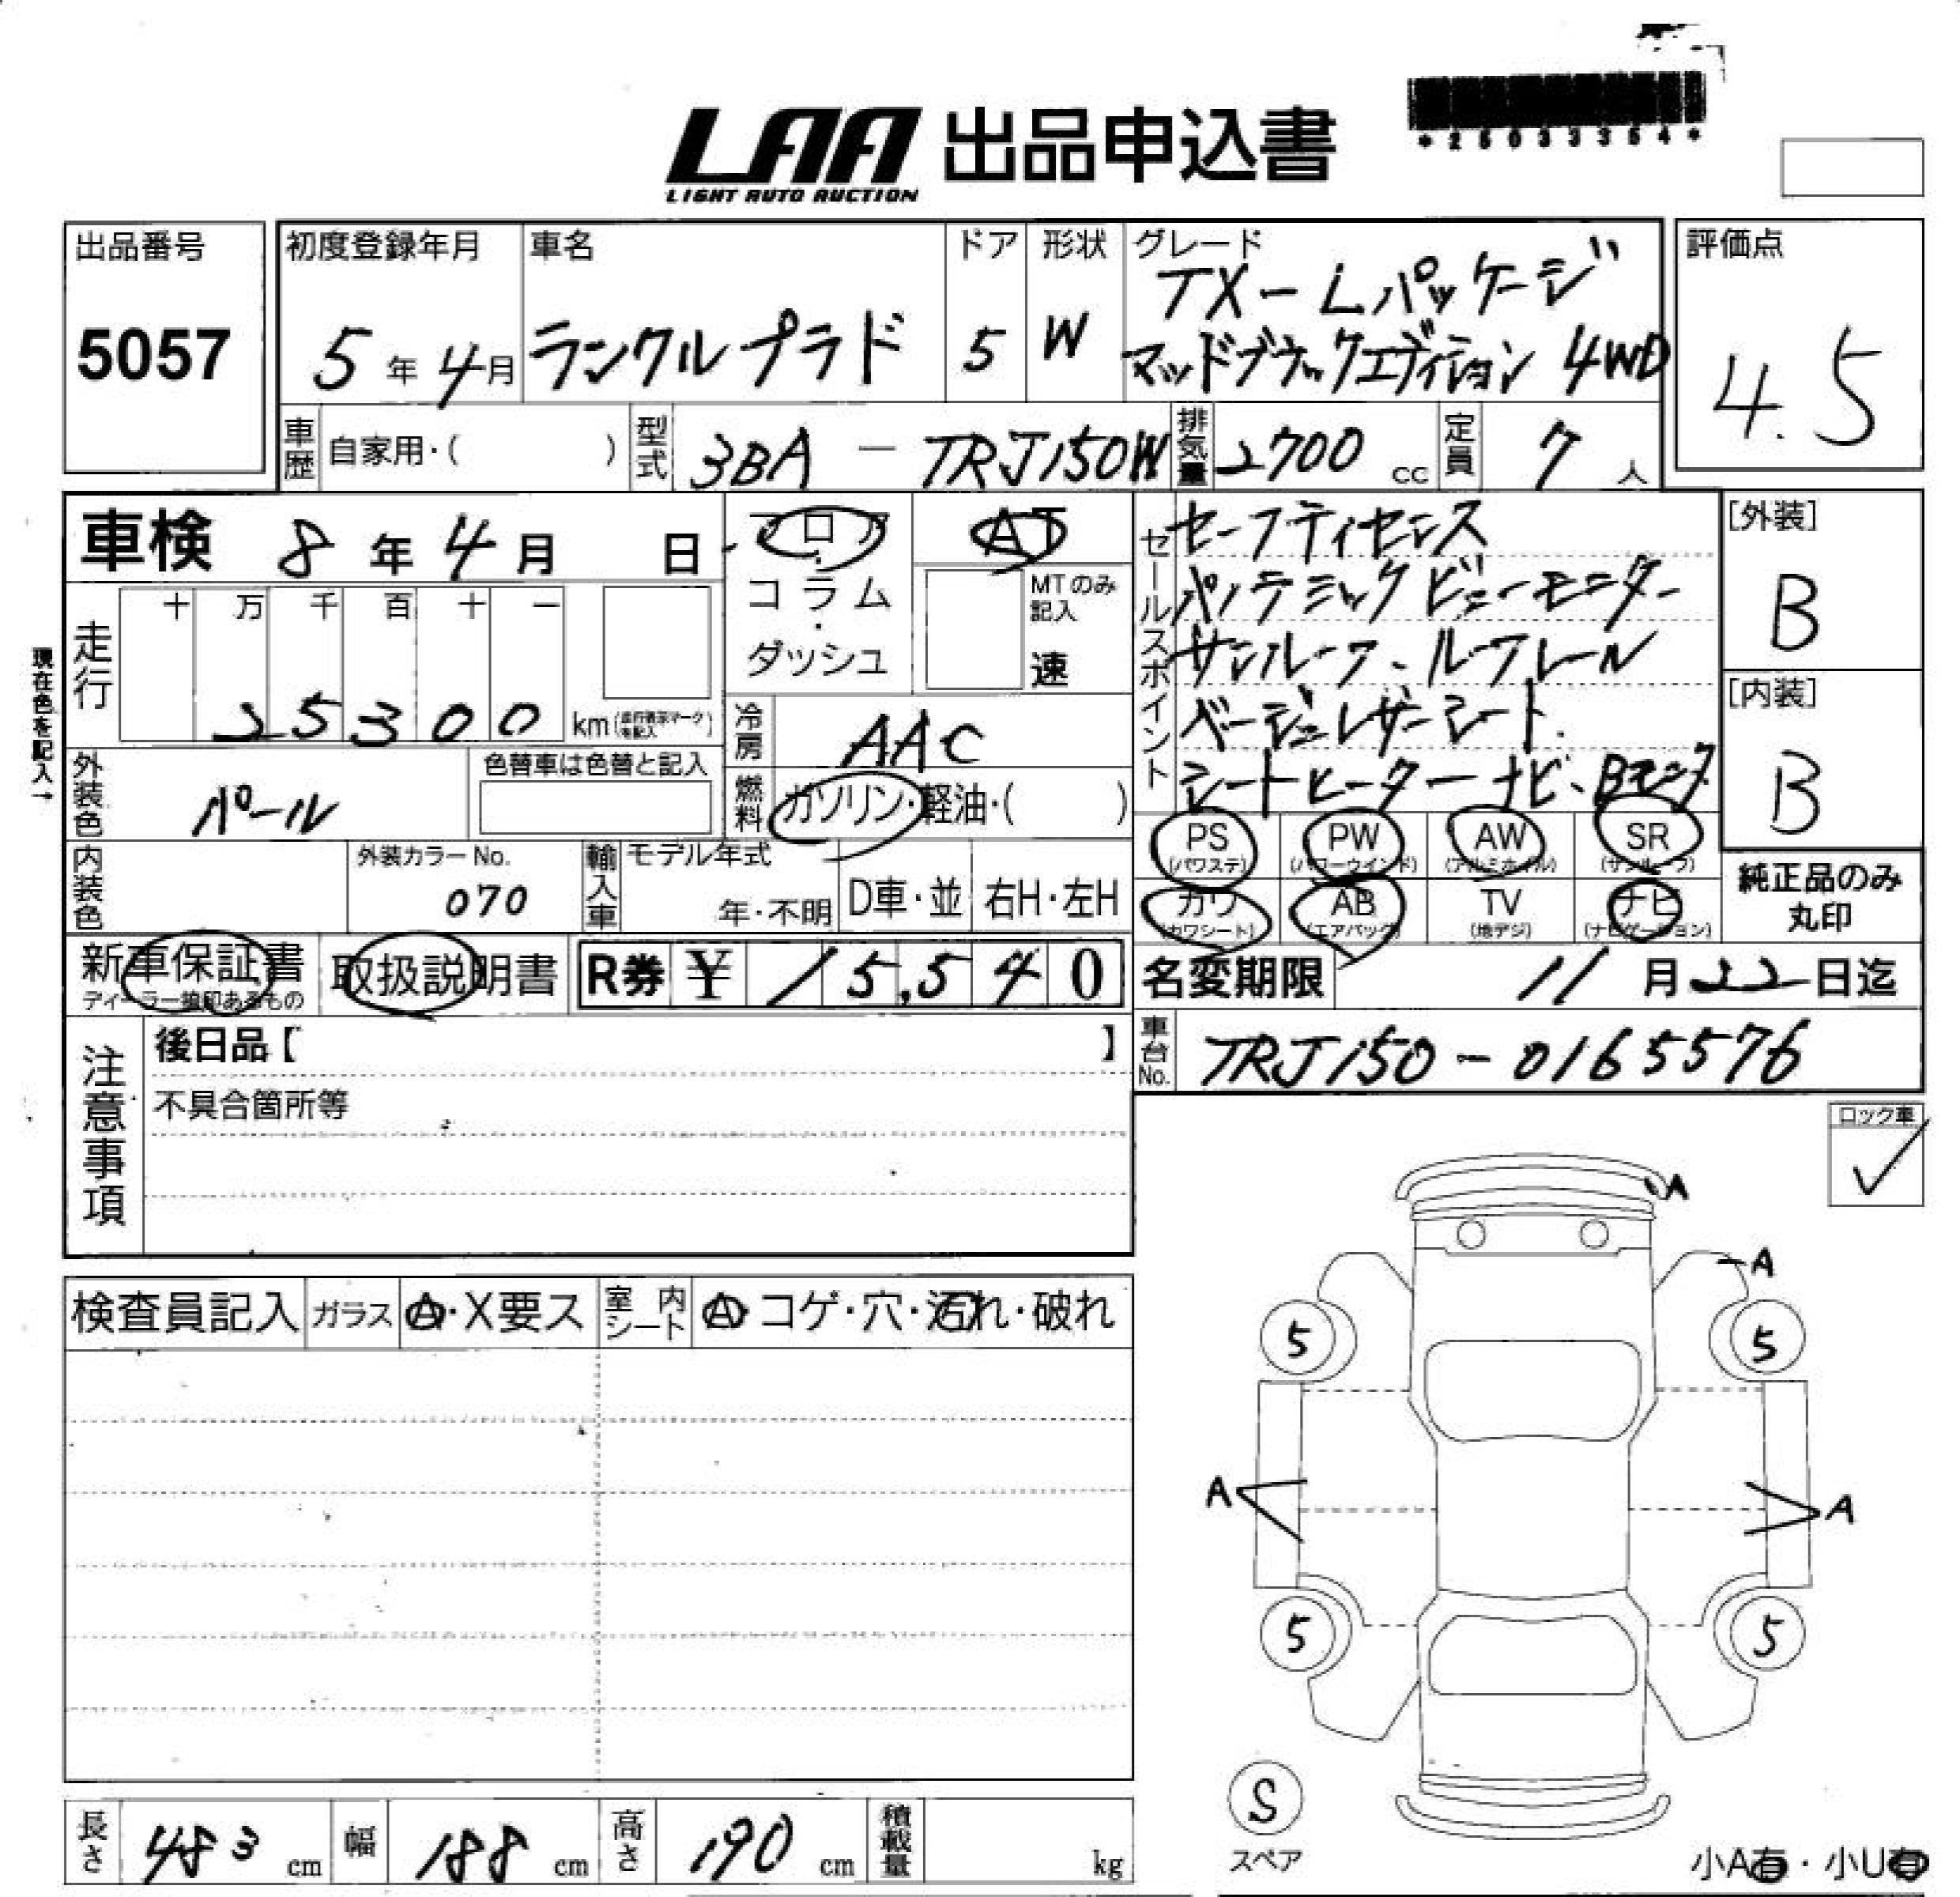 LAA 出品申込書
LIGHT AUTO AUCTION
*25033354*
出品番号
5057
初度登録年月
5年4月
車名
ランクルプラド
ドア
5
形状
W
グレード
TX-Lパッケージ
マッドブラックエディション 4WD
評価点
4.5
車歴 自家用・( )
型式 3BA - TRJ150W
排気量 2700 cc
定員 7 人
車検 8年4月 日
フロア
・
コラム
・
ダッシュ
AT
MTのみ
記入
速
現在色を記入→
走行
十 万 千 百 十 一
25300 km
冷房 AAC
燃料 ガソリン・軽油・( )
外装色 パール
色替車は色替と記入
内装色
外装カラーNo.
070
輸入車
モデル年式
年・不明
D車・並
右H・左H
セールスポイント
セーフティセンス
パノラミックビューモニター
サンルーフ、ルーフレール
ベージュレザーシート.
シートヒーター ナビ、Bモニタ
[外装]
B
[内装]
B
PS (パワステ)
PW (パワーウインド)
AW (アルミホイル)
SR (サンルーフ)
カワ (カワシート)
AB (エアバッグ)
TV (地デジ)
ナビ (ナビゲーション)
純正品のみ
丸印
新車保証書
ディーラー捺印あるもの
取扱説明書
R券 ¥ 15,540
名変期限 11月22日迄
車台No. TRJ150-0165576
注意事項
後日品【 】
不具合箇所等
ロック車
✓
検査員記入
ガラス A・X要ス
室内シート A・コゲ・穴・汚れ・破れ
A
A
5
5
A
A
5
5
S
スペア
小A有・小U有
長さ 483 cm
幅 188 cm
高さ 190 cm
積載量 kg